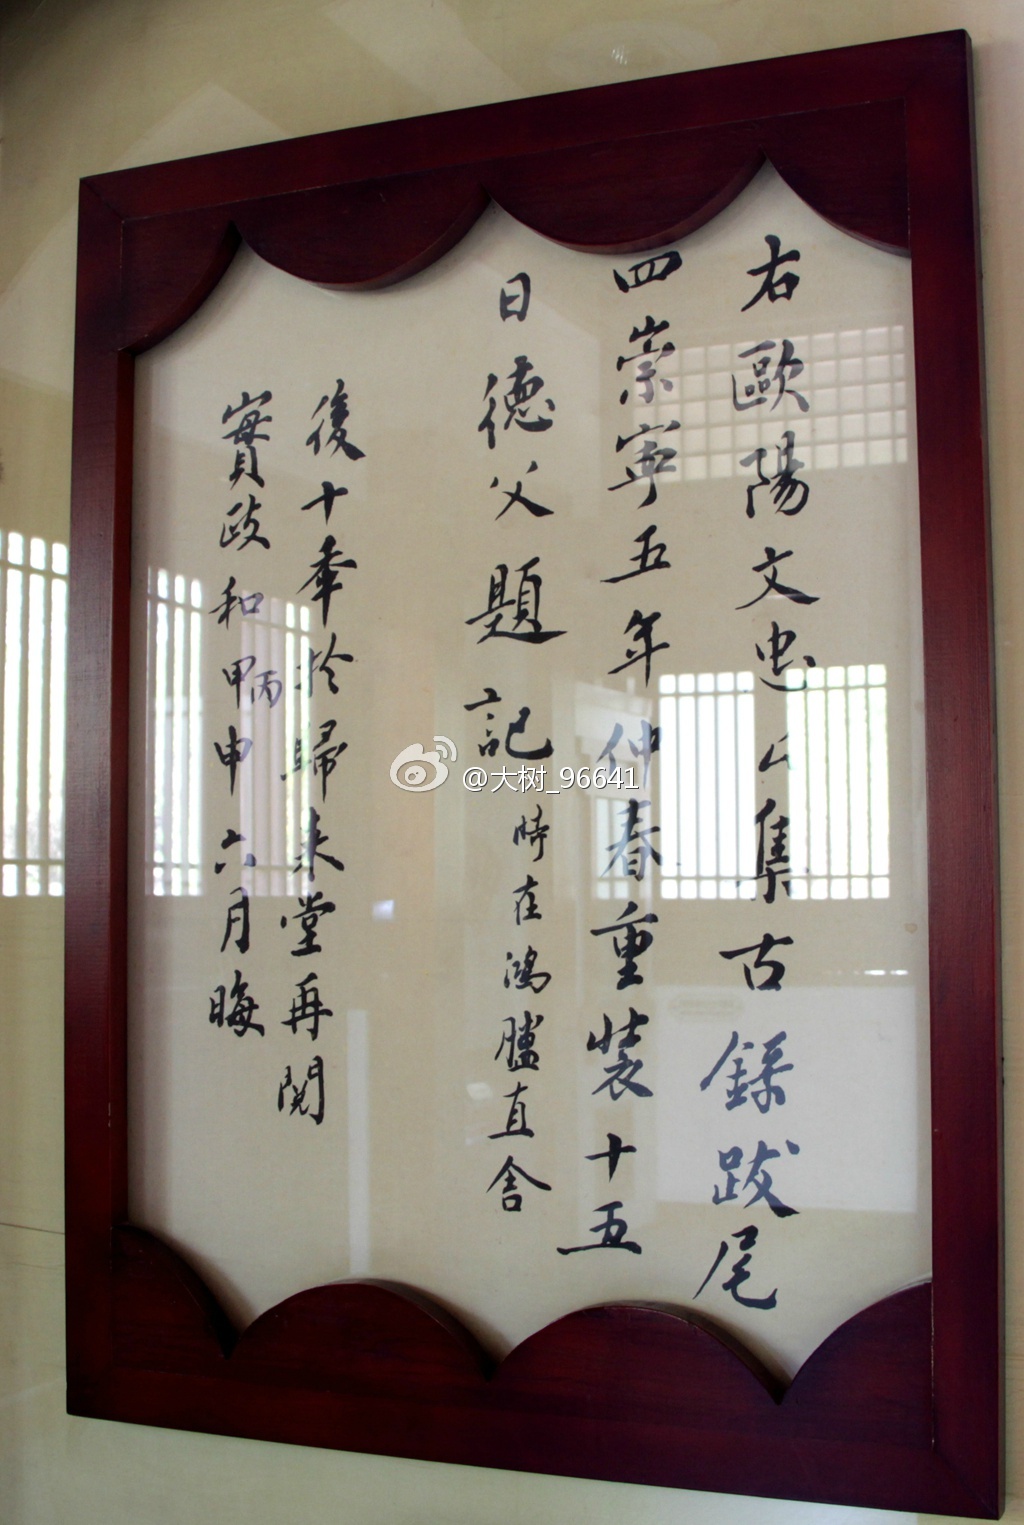 右歐陽文忠公集古錄跋尾
四崇寧五年仲春重裝十五
日德父題記時在鴻臚直舍
後十年於歸来堂再閱
實政和甲丙申六月晦
@大树_96641